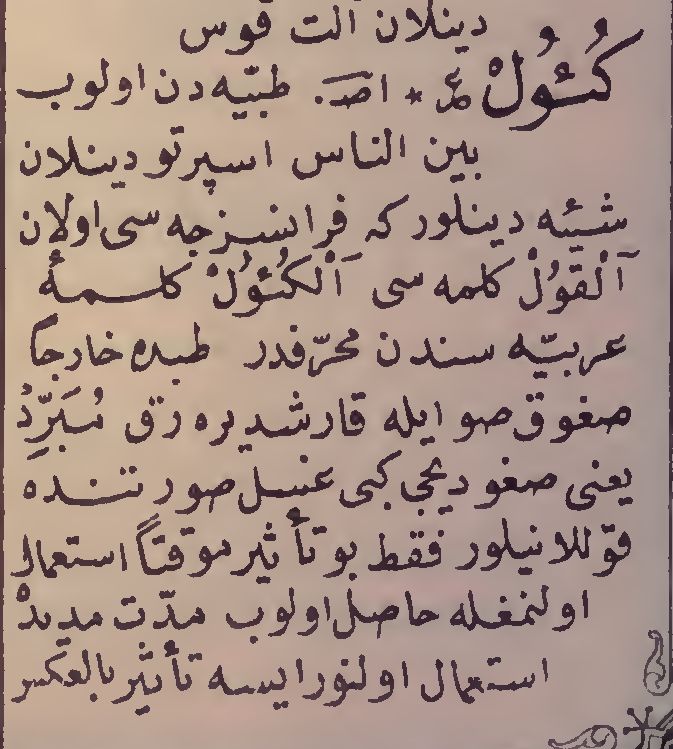 دینلان الت قوس
كُـئُـولْ ع * اصـ. طبّیه دن اولوب
بین الناس اسپرتو دینلان
شیئه دینلور كه فرانسزجه سی اولان
آلْقوُلْ كلمه سی اَلْكُئُولْ كلـمـهٔ
عربیّه سندن محرّفدر طبده خارجاً
صغوق صو ایله قارشدیره رق مُبَرِّدْ
یعنی صغودیجی كبی غسل صورتنده
قوّللانیلور فقط بو تأثیر موقتاً استعمال
اولنمغله حاصل اولوب مدّت مدیدْ
استعمال اولنور ایسه تأثیر بالعكس